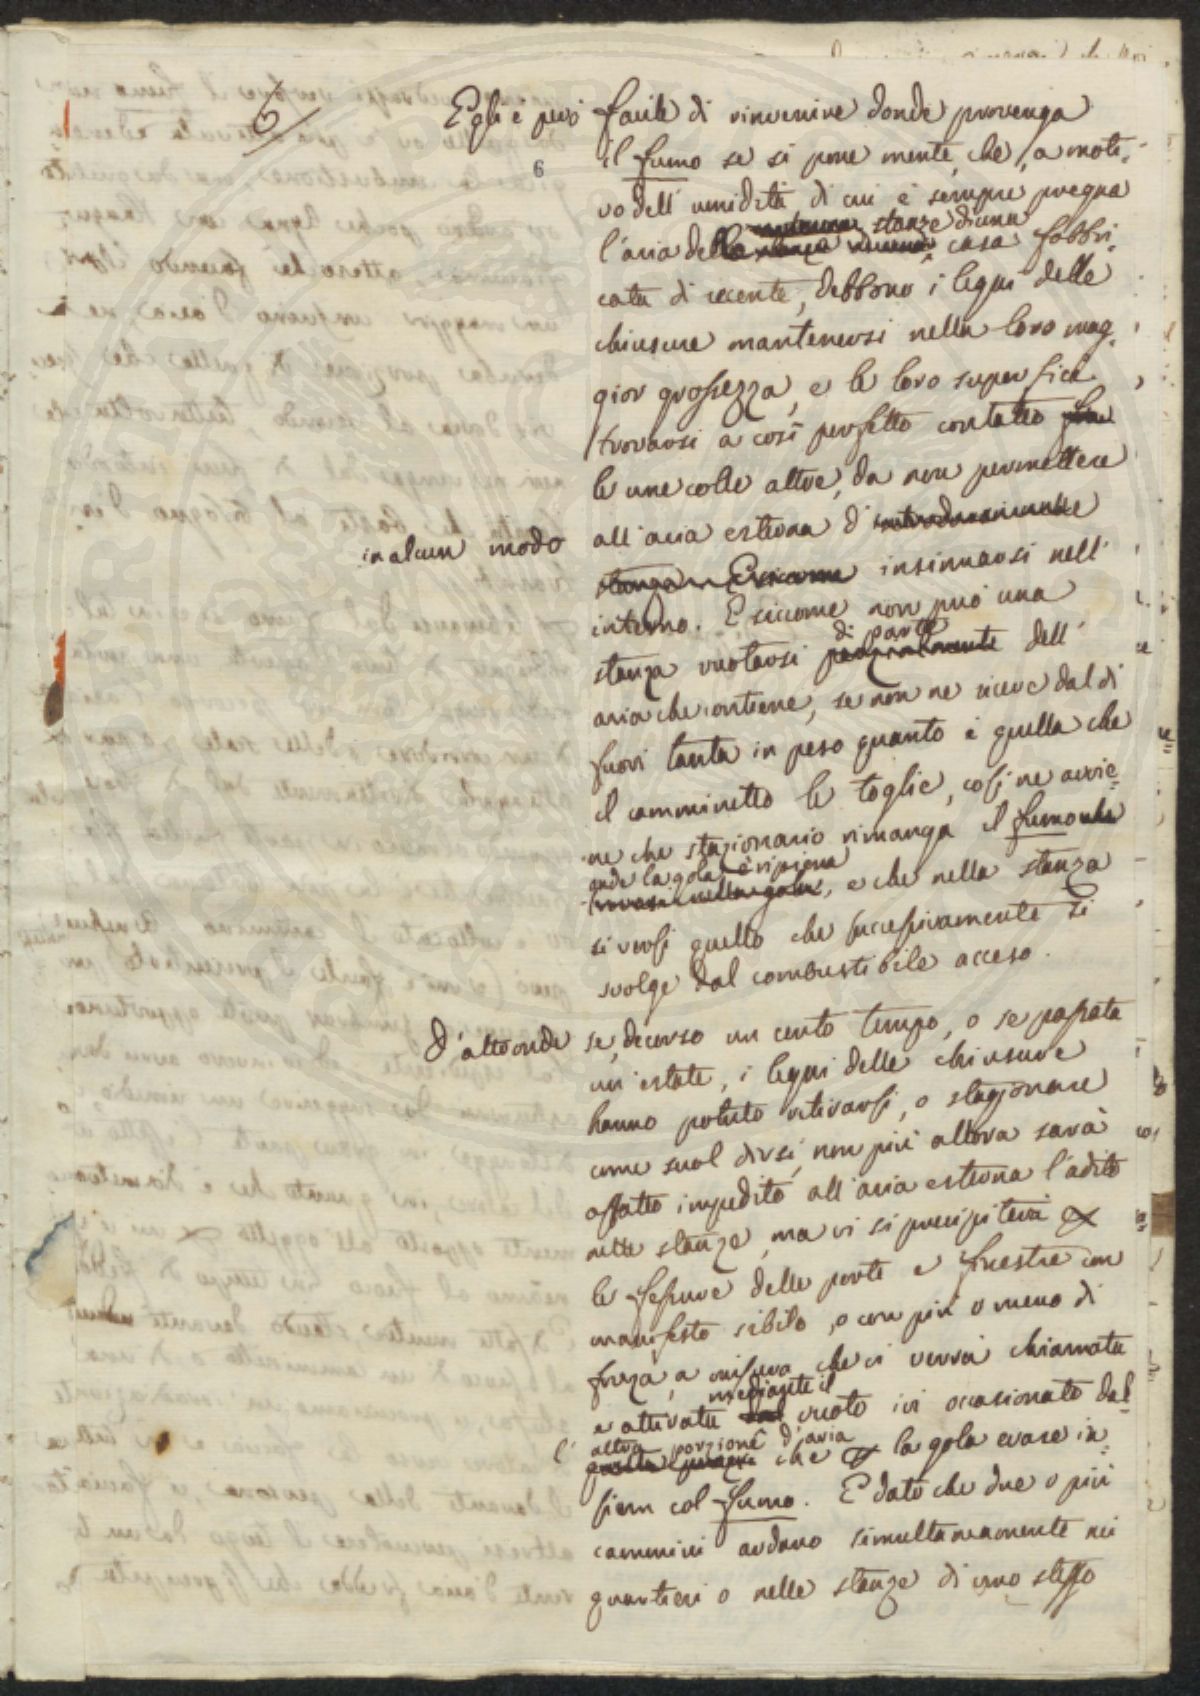 6
6
Egli è però facile di rinvenire donde provenga
il fumo se si pone mente, che, a moti-
vo dell'umidità di cui è sempre pregna
stanze d'una
l'aria delle casa fabbri-
cata di recente, debbono i legni delle
chiusure mantenersi nella loro mag-
gior grossezza, e le loro superficie
trovarsi a così perfetto contatto fra
le une colle altre, da non permettere
all'aria esterna d'
in alcun modo insinuarsi nell'
interno. E siccome non può una
di parte
stanza vuotarsi dell'
aria che contiene, se non ne riceve dal di
fuori tanta in peso quanto è quella che
il camminetto le toglie, così ne avvie-
ne che stazionario rimanga il fumo
onde la gola è ripiena
, e che nella stanza
si versi quello che successivamente si
svolge dal combustibile acceso.
D'altronde se, decorso un certo tempo, o se passata
un'estate, i legni delle chiusure
hanno potuto ritirarsi, o stagionare
come suol dirsi, non più allora sarà
affatto impedito all'aria esterna l'adito
nelle stanze, ma vi si precipiterà
le fessure delle porte e finestre con
manifesto sibilo, o con più o meno di
forza, a misura che vi verrà chiamata
mediante il
e attivata vuoto ivi occasionato dal-
l'altra porzione d'aria
che la gola evase in-
siem col fumo. E dato che due o più
cammini ardano simultaneamente nei
quartieri o nelle stanze di uno stesso